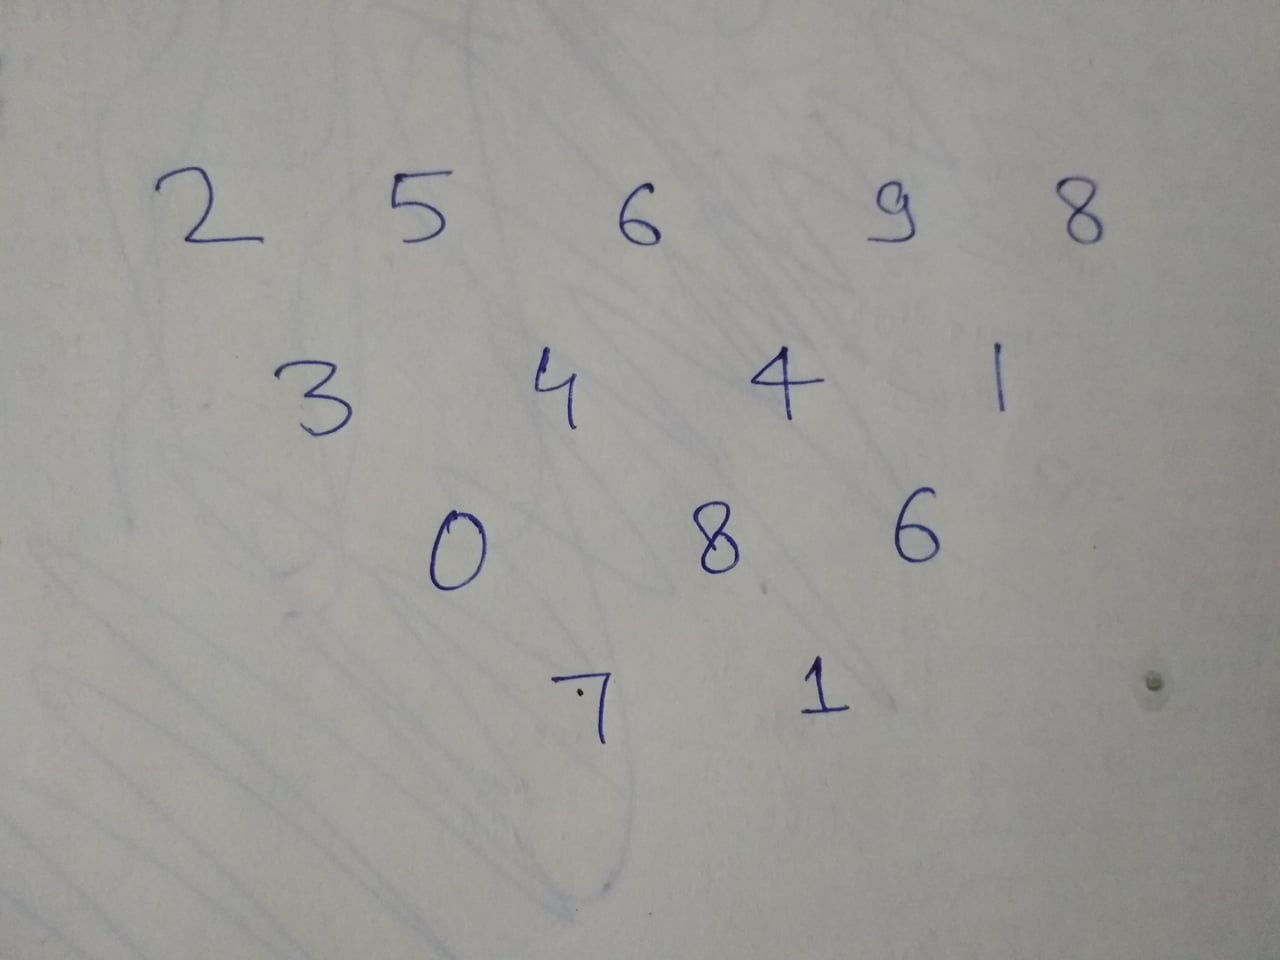 2 5 6 9 8
3 4 4 1
0 8 6
7 1